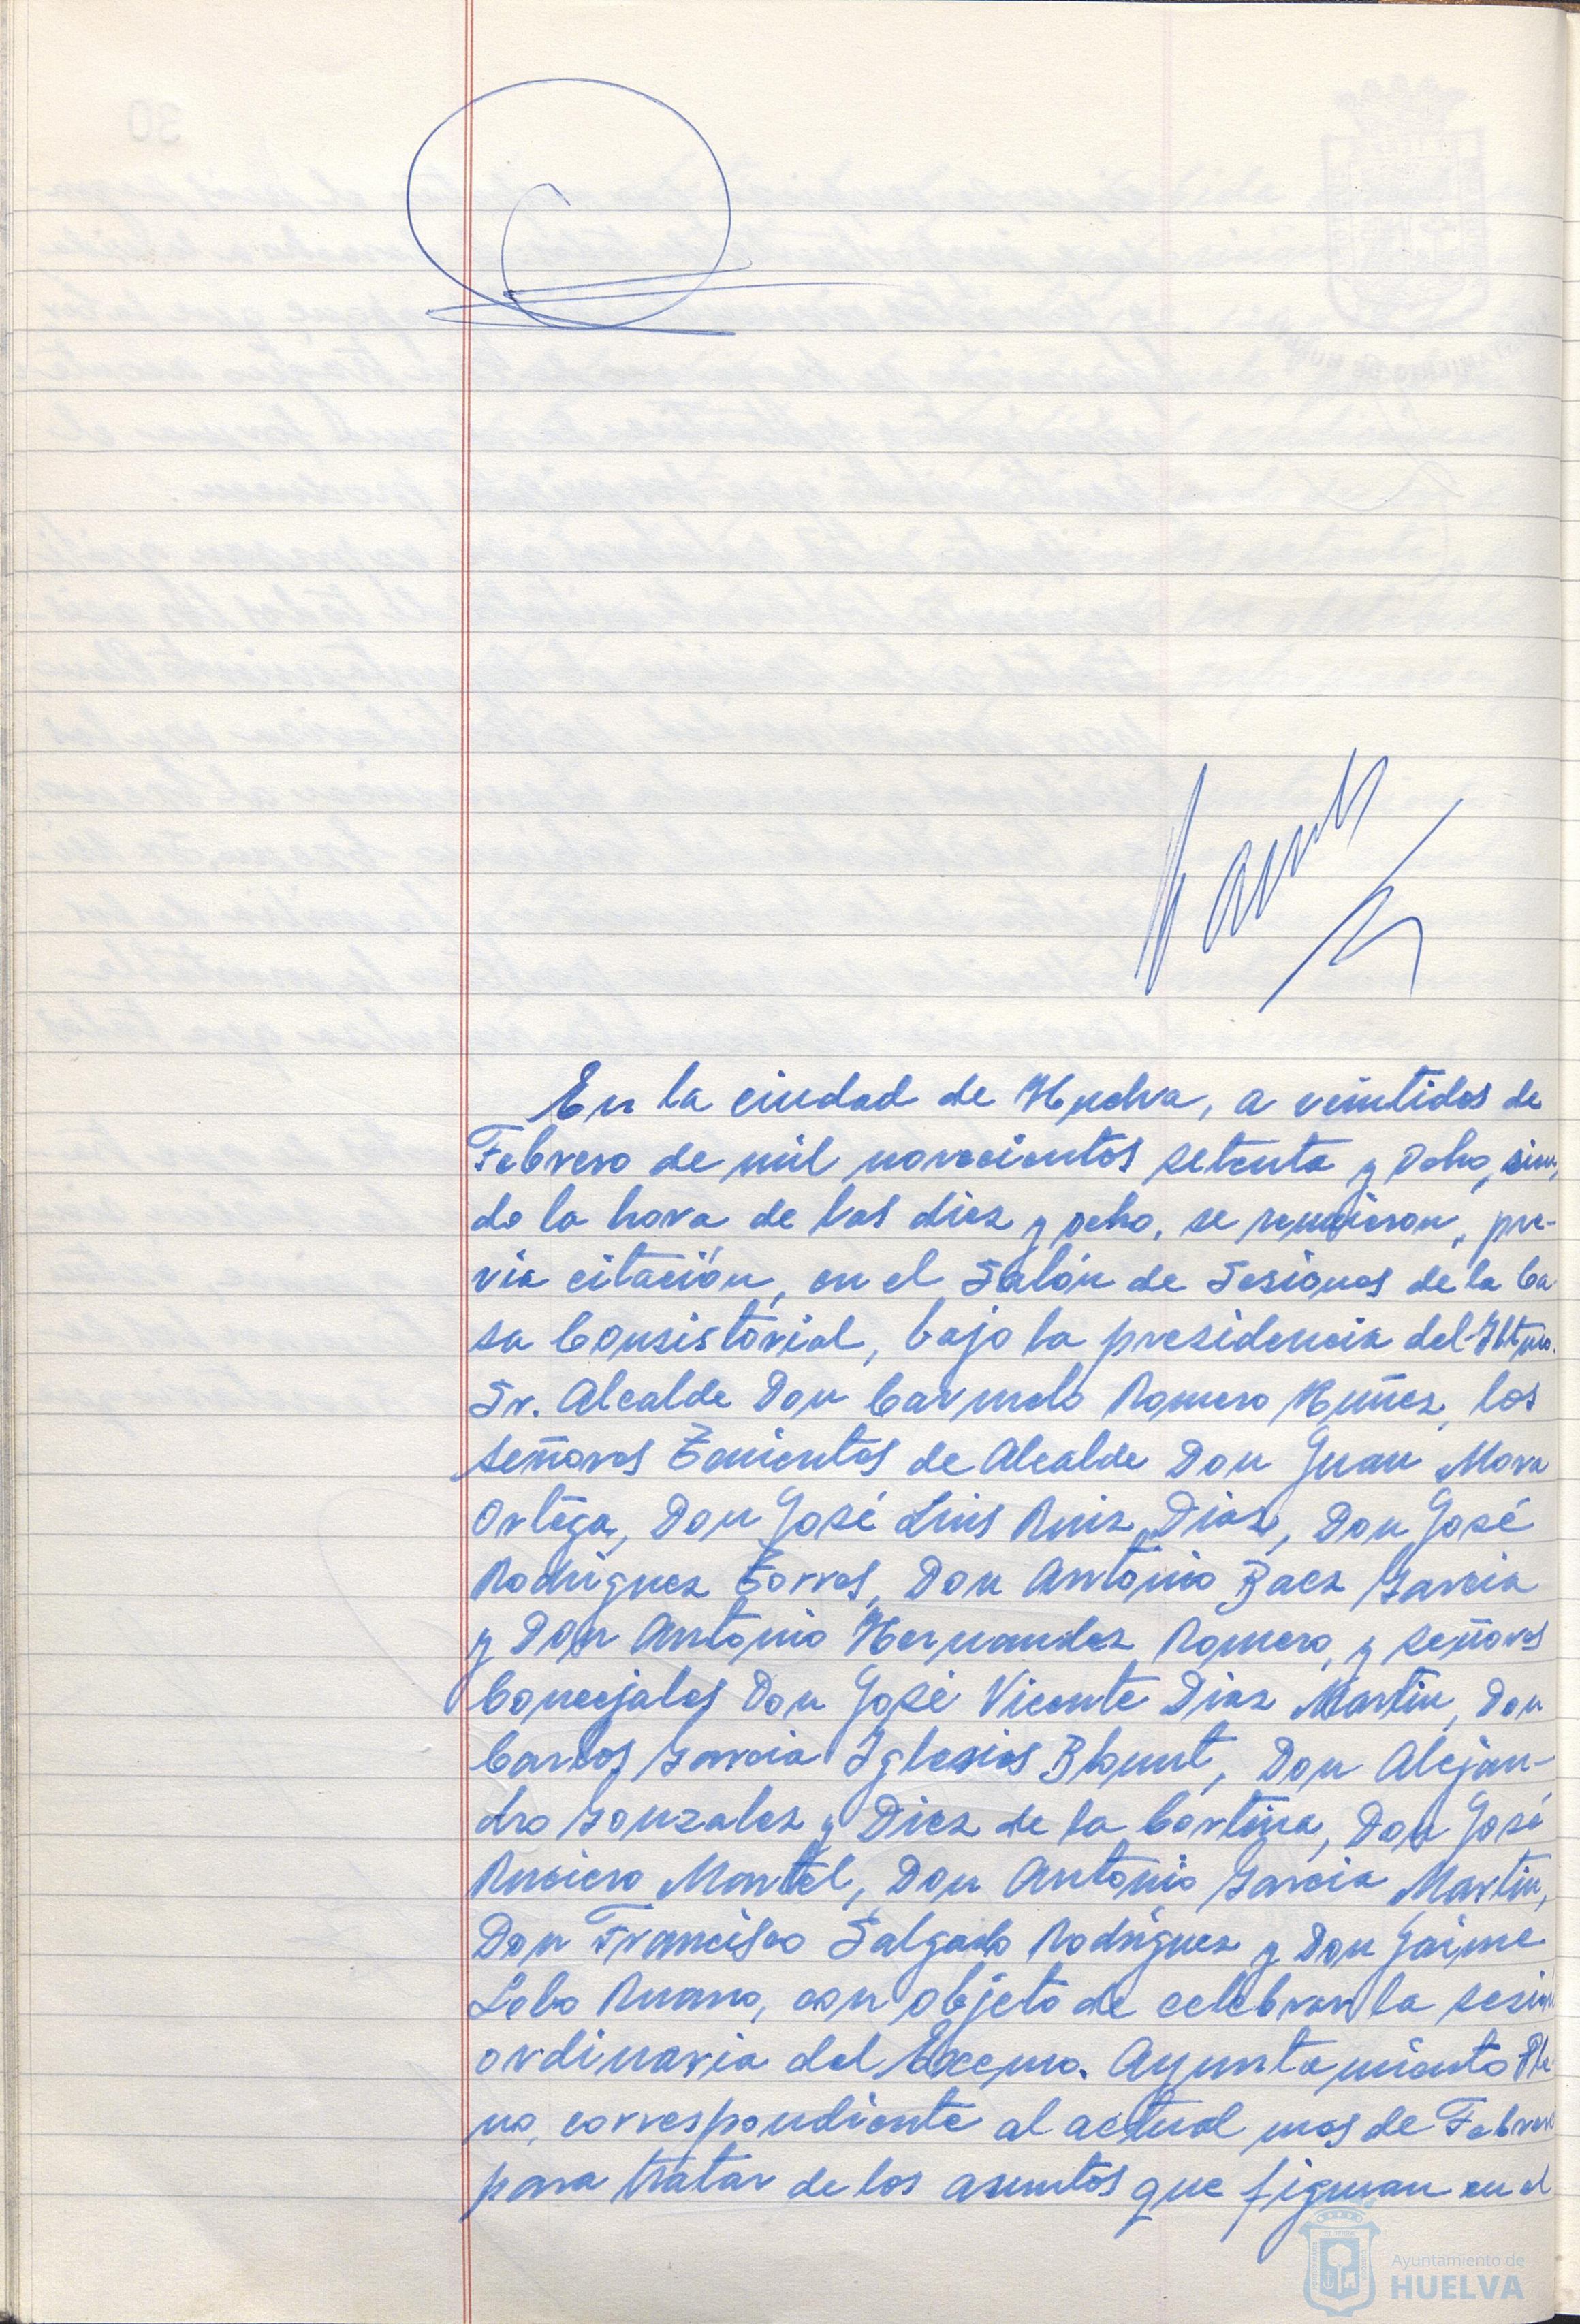 En la ciudad de Huelva, a veintidos de
Febrero de mil novecientos setenta y ocho, sien-
do la hora de las diez y ocho, se reunieron, pre-
via citación, en el Salón de Sesiones de la Ca-
sa Consistorial, bajo la presidencia del Iltmo.
Sr. Alcalde Don Carmelo Romero Nuñez, los
señores Tenientes de Alcalde Don Juan Mora
Ortega, Don José Luis Ruiz Diaz, Don José
Rodriguez Torres, Don Antonio Baez Garcia
y Don Antonio Hernandez Romero, y señores
Concejales Don José Vicente Diaz Martin, Don
Carlos Garcia Iglesias Blount, Don Alejan-
dro Gonzalez y Diez de la Cortina, Don José
Ruciero Martel, Don Antonio Garcia Martin,
Don Francisco Salgado Rodriguez y Don Jaime
Lobo Ruano, con objeto de celebrar la sesión
ordinaria del Excmo. Ayuntamiento Ple-
no, correspondiente al actual mes de Febrero
para tratar de los asuntos que figuran en el
Ayuntamiento de
HUELVA